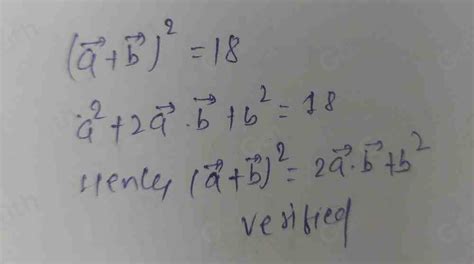 (a⃗+b⃗)² = 18
a²+2a⃗.b⃗+b² = 18
Henle, (a⃗+b⃗)² = 2a⃗.b⃗+b²
verified